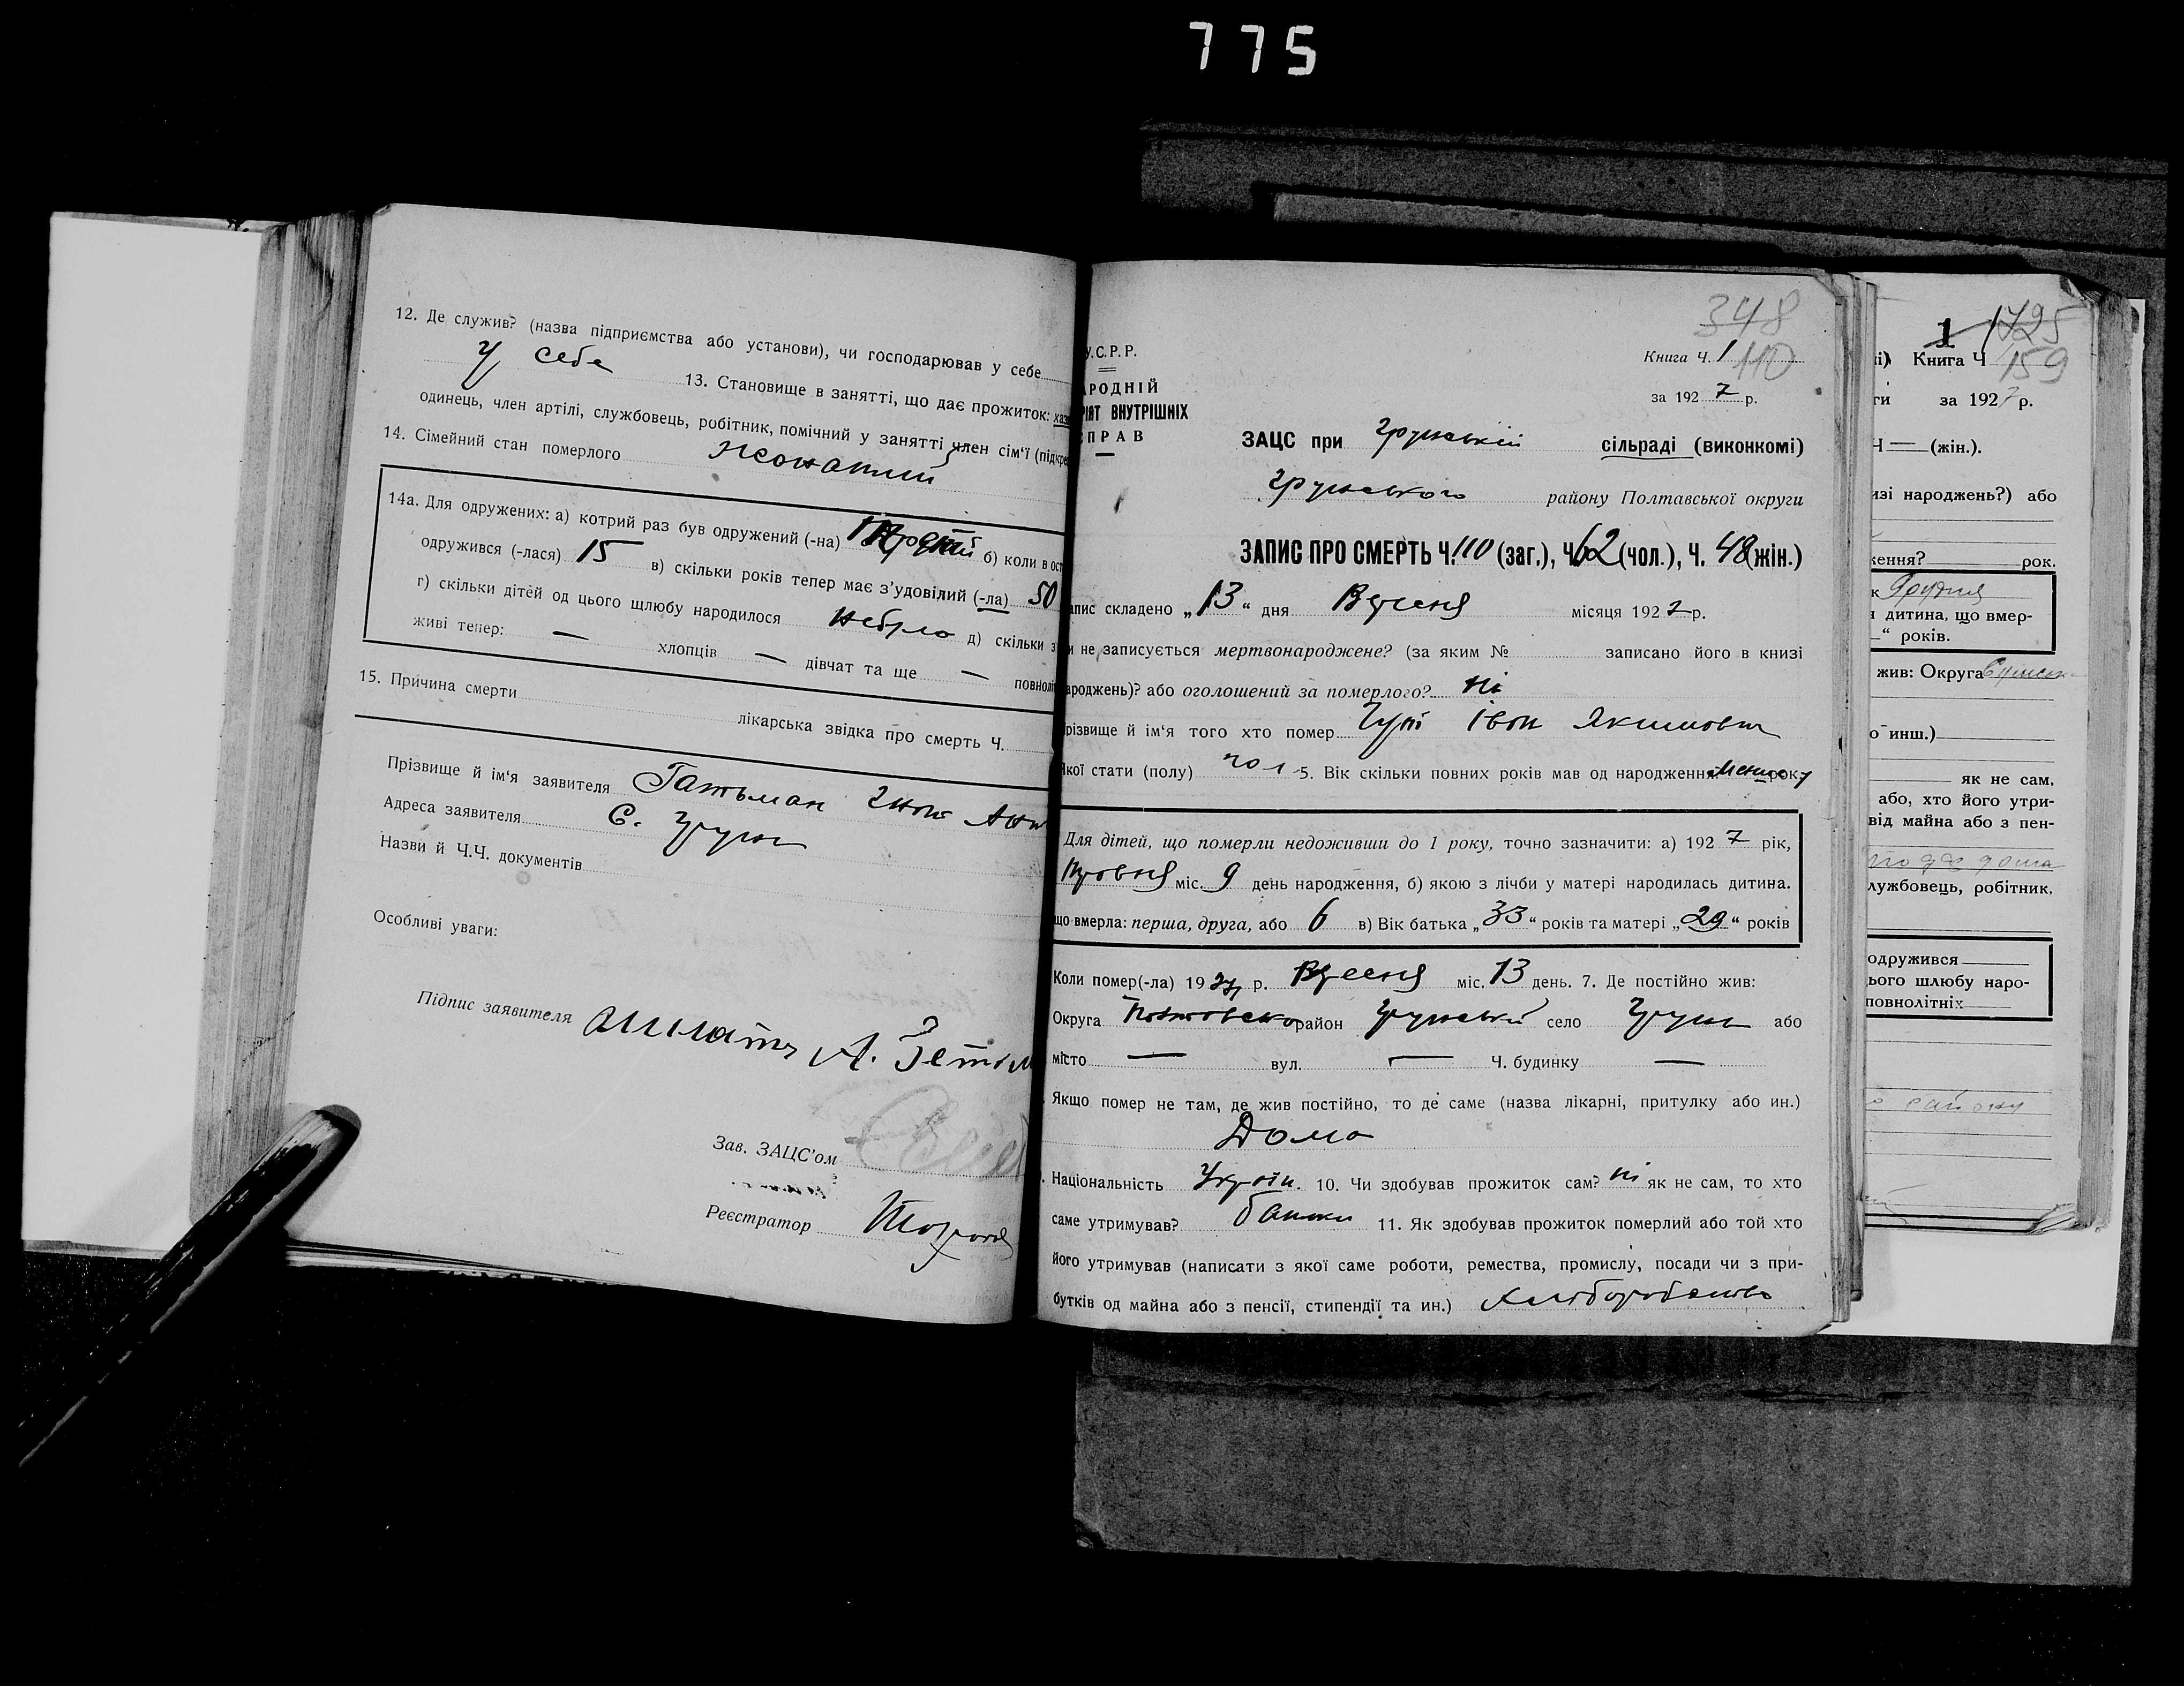 775
12. Де служив? (назва підприємства або установи), чи господарював у себе
у себе 13. Становище в занятті, що дає прожиток: хаз
одинець, член артілі, службовець, робітник, помічний у занятті член сім'ї (підкре
14. Сімейний стан померлого жонатий
14а. Для одружених: а) котрий раз був одружений (-на) б) коли в ост
одружився (-лася) 15 в) скільки років тепер має з'удовілий (-ла) 50
г) скільки дітей од цього щлюбу народилося небуло д) скільки з
живі тепер: — хлопців — дівчат та ще — повноліт
15. Причина смерти
лікарська звідка про смерть Ч.
Прізвище й ім'я заявителя Гатьман
Адреса заявителя С. Грунь
Назви й Ч.Ч. документів
Особливі уваги:
Підпис заявителя
Зав. ЗАЦС'ом
Реєстратор
348
У.С.Р.Р.
Книга Ч. 1 110
АРОДНІЙ
за 1927 р.
РІЯТ ВНУТРІШНІХ
СПРАВ
ЗАЦС при Грунській сільраді (виконкомі)
Грунського району Полтавської округи
ЗАПИС ПРО СМЕРТЬ Ч. 110 (заг.), Ч. 62 (чол.), Ч. 48 (жін.)
апис складено „13“ дня Вресня місяця 1927 р.
и не записується мертвонароджене? (за яким № записано його в книзі
ароджень)? або оголошений за померлого? Ні
різвище й ім'я того хто помер Гут Іван Якимович
якої стати (полу) чол 5. Вік скільки повних років мав од народження Менше року
Для дітей, що померли недоживши до 1 року, точно зазначити: а) 1927 рік,
міс. 9 день народження, б) якою з лічби у матері народилась дитина.
що вмерла: перша, друга, або 6 в) Вік батька „33“ років та матері „29“ років
Коли помер(-ла) 1927 р. Вресня міс. 13 день. 7. Де постійно жив:
Округа Полтовсько район Грунський село Грунь або
місто — вул. — Ч. будинку —
Якщо помер не там, де жив постійно, то де саме (назва лікарні, притулку або ин.)
Дома
Національність Україн. 10. Чи здобував прожиток сам? ні як не сам, то хто
саме утримував? батьки 11. Як здобував прожиток померлий або той хто
його утримував (написати з якої саме роботи, ремества, промислу, посади чи з при-
бутків од майна або з пенсії, стипендії та ин.) хліборобство
1 1725
і) Книга Ч 159
ги за 1927 р.
Ч — (жін.).
изі народжень?) або
ження? рок.
к Грудня
я дитина, що вмер-
—“ років.
жив: Округа
о инш.)
як не сам,
або, хто його утри-
від майна або з пен-
лужбовець, робітник,
одружився
цього шлюбу наро-
повнолітніх
району